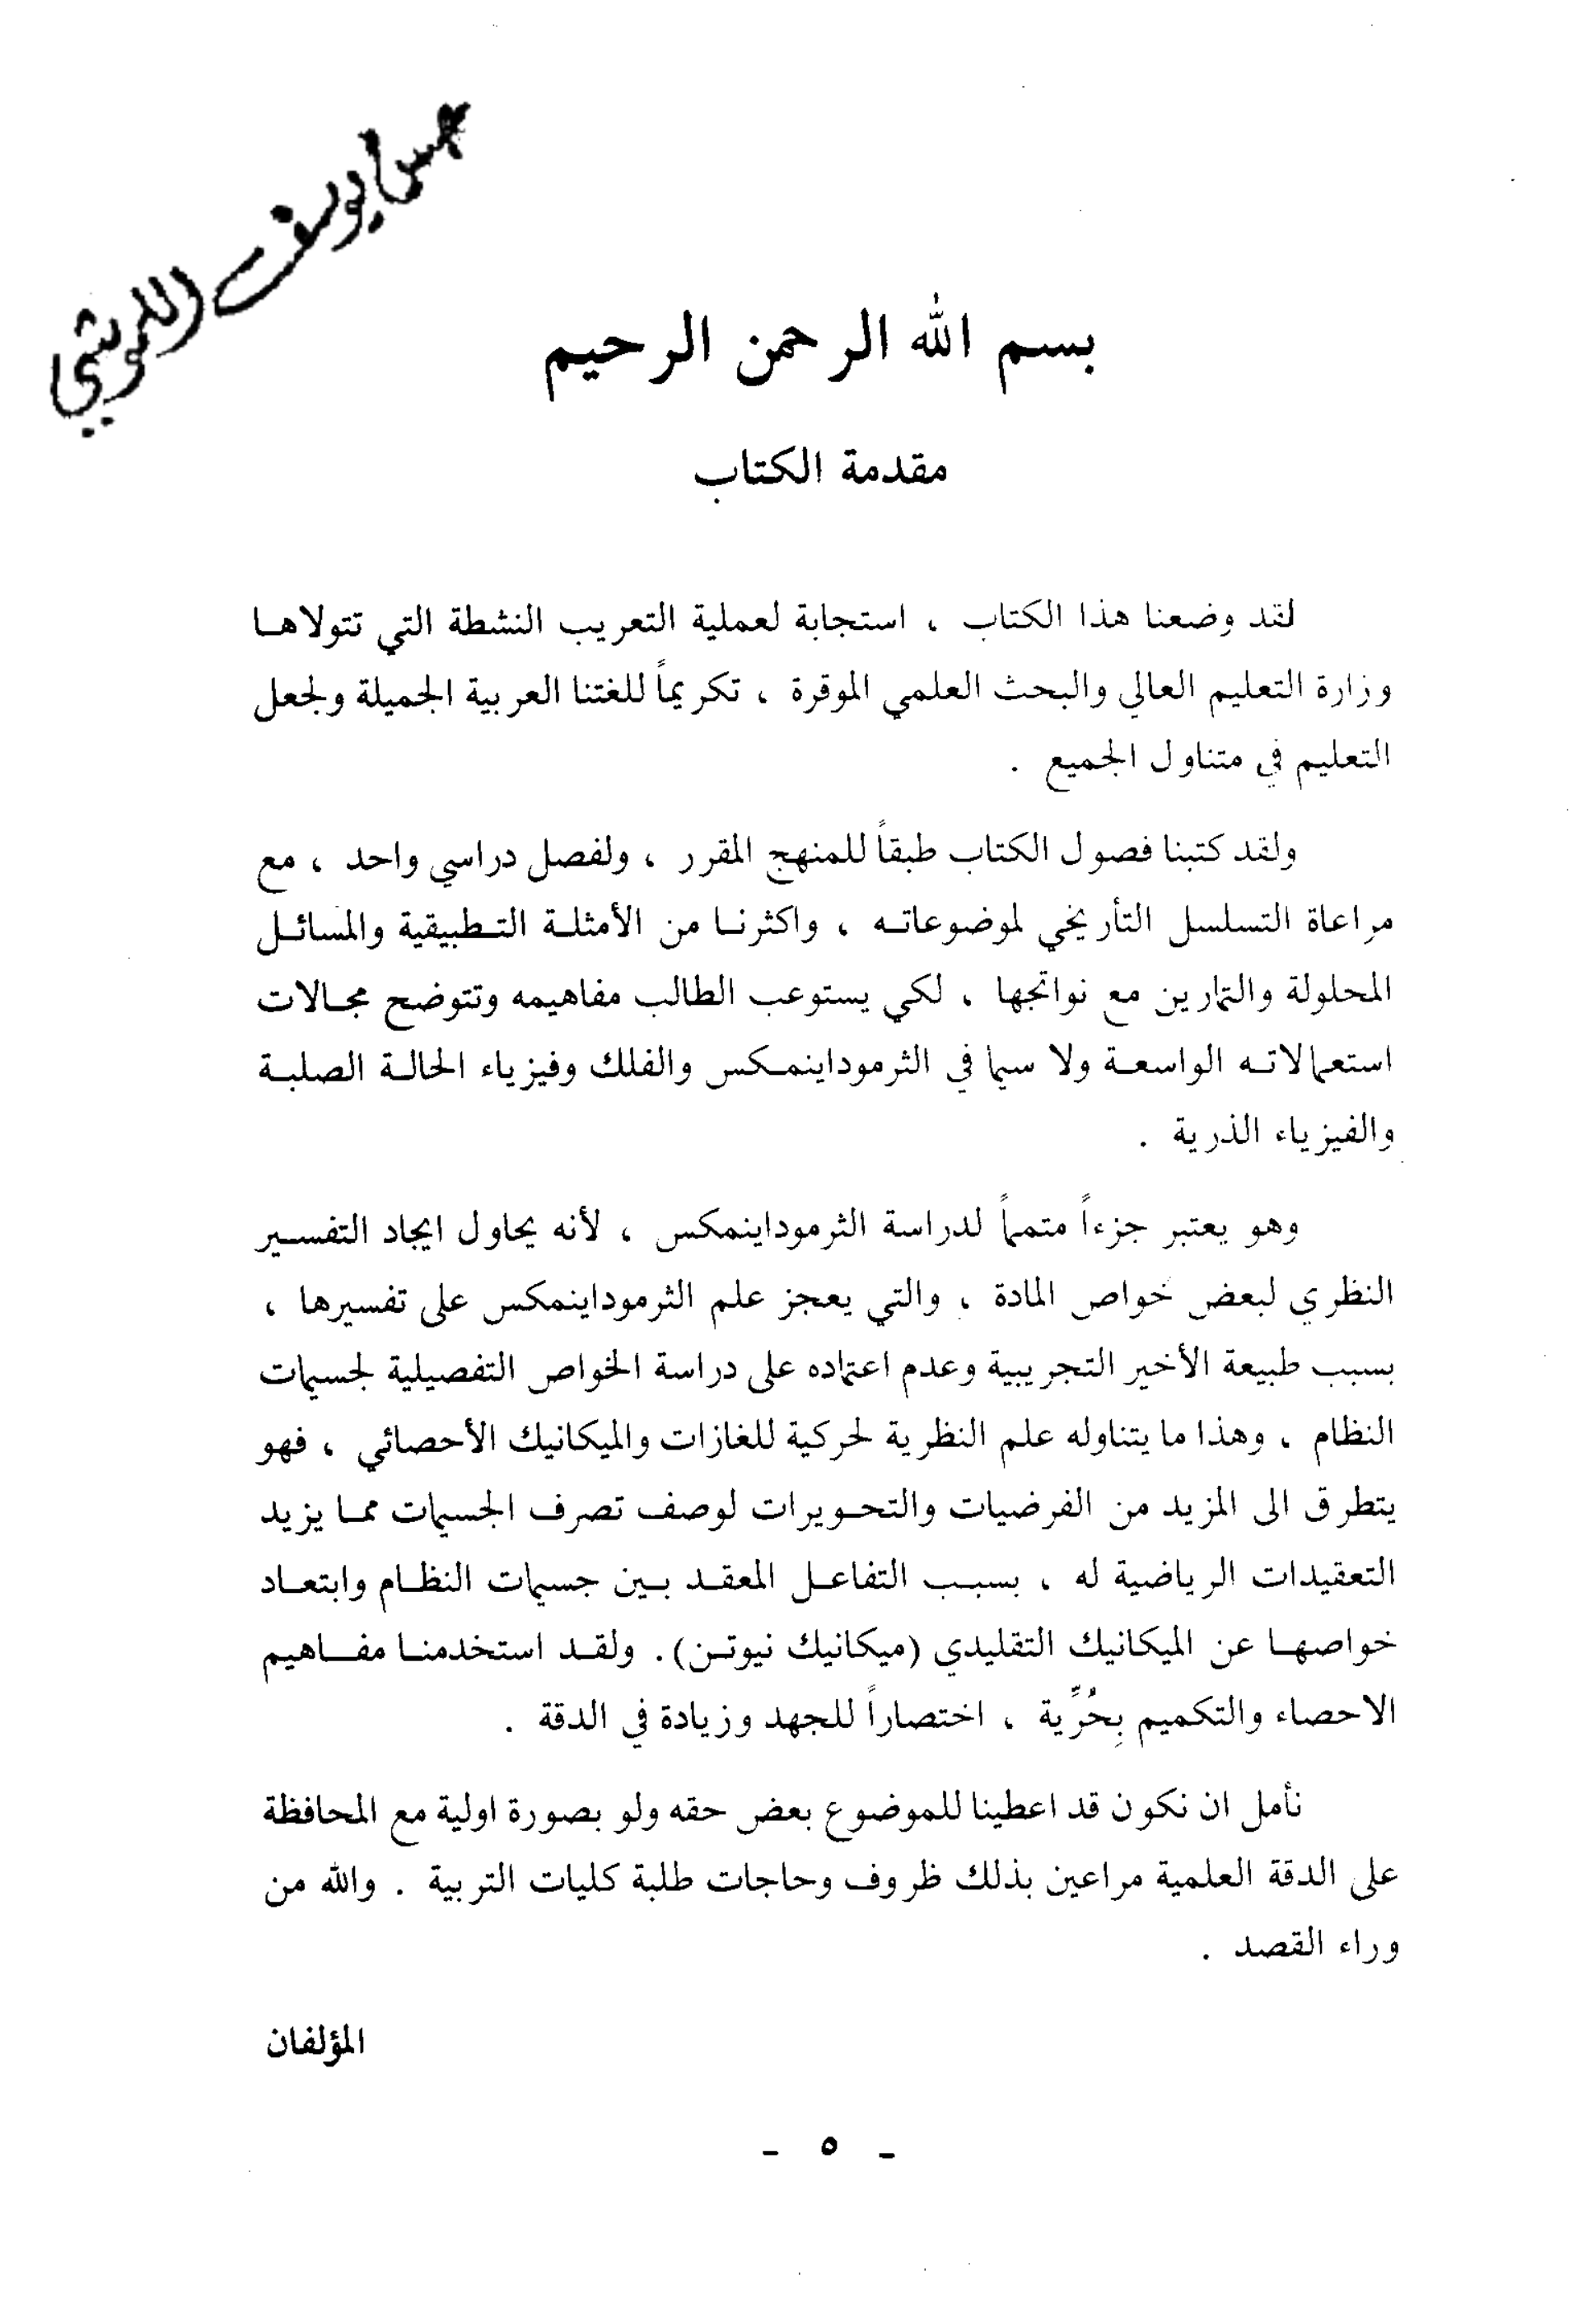 يوسف
بسم الله الرحمن الرحيم
مقدمة الكتاب
لقد وضعنا هذا الكتاب ، استجابة لعملية التعريب النشطة التي تتولاهـا
وزارة التعليم العالي والبحث العلمي الموقرة ، تكريماً للغتنا العربية الجميلة ولجعل
التعليم في متناول الجميع .
ولقد كتبنا فصول الكتاب طبقاً للمنهج المقرر ، ولفصل دراسي واحد ، مع
مراعاة التسلسل التأريخي لموضوعاتـه ، واكثرنـا من الأمثلـة التـطبيقية والمسائـل
المحلولة والتمارين مع نواتجها ، لكي يستوعب الطالب مفاهيمه وتتوضح مجـالات
استعمالاتـه الواسعـة ولا سيما في الثرموداينمـكس والفلك وفيزياء الحالـة الصلبـة
والفيزياء الذرية .
وهو يعتبر جزءاً متمماً لدراسة الثرموداينمكس ، لأنه يحاول ايجاد التفسـير
النظري لبعض خواص المادة ، والتي يعجز علم الثرموداينمكس على تفسيرها ،
بسبب طبيعة الأخير التجريبية وعدم اعتماده على دراسة الخواص التفصيلية لجسيمات
النظام ، وهذا ما يتناوله علم النظرية لحركية للغازات والميكانيك الأحصائي ، فهو
يتطرق الى المزيد من الفرضيات والتحـويرات لوصف تصرف الجسيمات ممـا يزيد
التعقيدات الرياضية له ، بسبـب التفاعـل المعقـد بـين جسيمات النظـام وابتعـاد
خواصهـا عن الميكانيك التقليدي (ميكانيك نيوتـن). ولقـد استخدمنـا مفـاهيم
الاحصاء والتكميم بِحُرِّية ، اختصاراً للجهد وزيادة في الدقة .
نأمل ان نكون قد اعطينا للموضوع بعض حقه ولو بصورة اولية مع المحافظة
على الدقة العلمية مراعين بذلك ظروف وحاجات طلبة كليات التربية . والله من
وراء القصد .
المؤلفان
- ٥ -